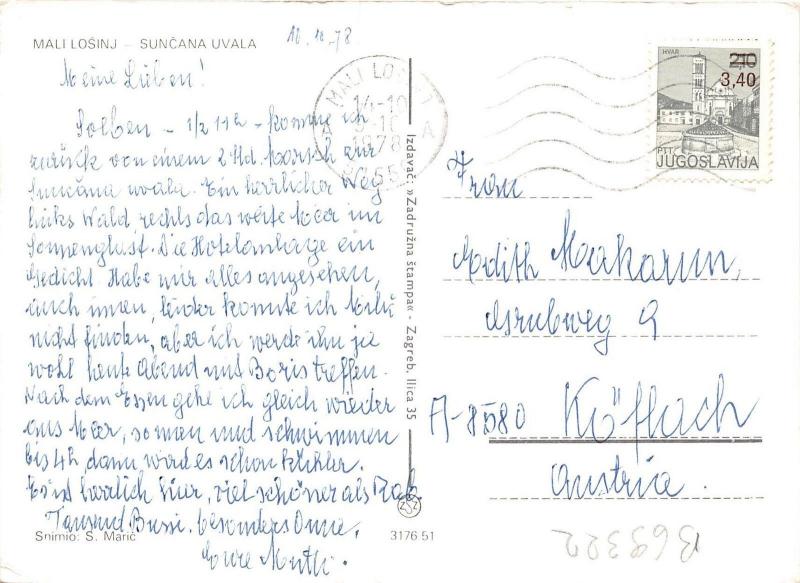 10.10.78
MALI LOŠINJ – SUNČANA UVALA
Meine Lieben!
Soeben – 1/2 11h – komme ich
zurück von einem 2 Std. Marsch zur
Sunčana uvala. Ein herrlicher Weg
links Wald, rechts das weite Meer im
Sonnenglast. Die Hotelanlage ein
Gedicht. Habe mir alles angesehen,
auch innen, leider konnte ich
nicht finden, aber ich werde ihn ja
wohl heute Abend mit Boris treffen.
Nach dem Essen gehe ich gleich wieder
ans Meer, sonnen und schwimmen
bis 4h, dann wird es schon kühler.
Es ist herrlich hier, viel schöner als Rab.
Tausend Bussi, besonders
Eure Mutti.
Snimio: S. Marić
3176 51
Izdavač: »Zadružna štampa« - Zagreb, Ilica 35
ZŠZ
MALI LOŠINJ
14-10
1978
A
A
HVAR
2,10
3,40
PTT
JUGOSLAVIJA
Frau
Makarun,
9
A-8580 Köflach
Austria.
B69322